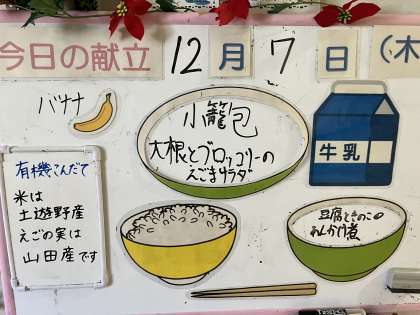 今日の献立 12月7日(木
バナナ
小籠包
大根とブロッコリーの
えごまサラダ
牛乳
有機こんだて
米は
土遊野産
えごの実は
山田産です
豆腐ときのこの
あんかけ煮